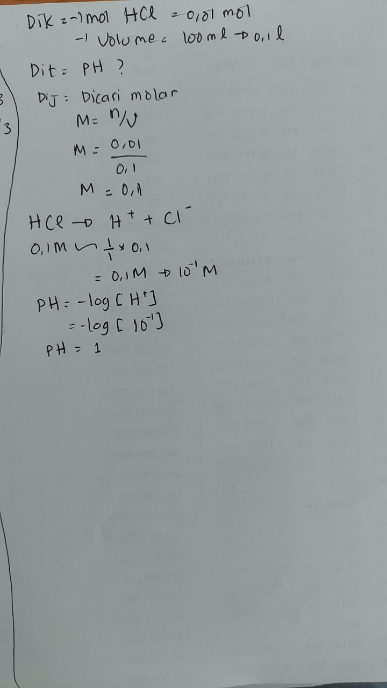 Dik = -) mol HCl = 0,01 mol
-) Volume = 100 ml → 0,1 l
Dit = PH ?
Dij : Dicari molar
M = n/v
M = 0,01
0,1
M = 0,1
HCl → H+ + Cl-
0,1 M ~ 1/1 x 0,1
= 0,1 M → 10-1 M
PH = -log [H+]
= -log [10-1]
PH = 1
3
3